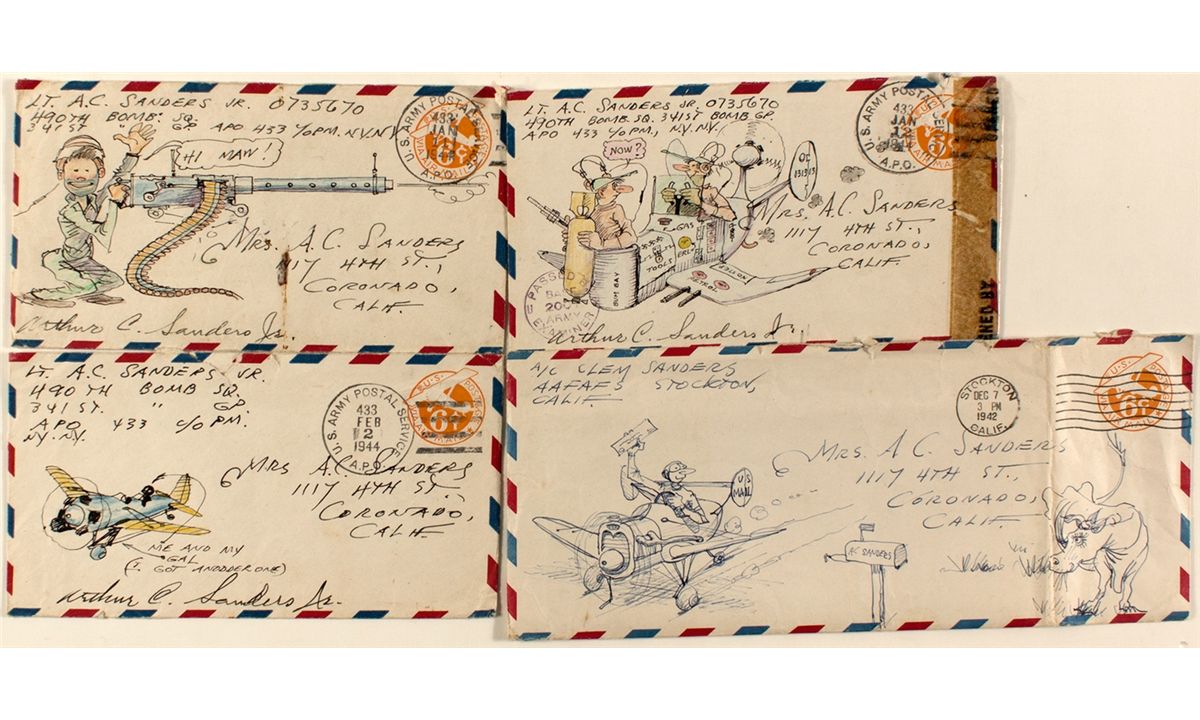 LT. A.C. SANDERS JR. 0735670
490TH BOMB. SQ.
341ST " GP. APO 433 C/O P.M. N.Y. N.Y.
HI MAW!
U.S. ARMY POSTAL
433
JAN
1944
A.P.O.
MRS. A.C. SANDERS
1117 4TH ST.,
CORONADO,
CALIF.
Arthur C. Sanders Jr.
LT. A.C. SANDERS JR. 0735670
490TH BOMB. SQ. 341ST BOMB GP.
APO 433 C/O P.M., N.Y. N.Y.
NOW?
U.S. ARMY POSTAL
433
JAN
12
1944
A.P.O.
131313
GAS
TOOLS
BUM BAY
PETROL
MRS. A.C. SANDERS
1117 4TH ST.,
CORONADO,
CALIF.
PASSED
BASE
ARMY
EXAMINER
Arthur C. Sanders Jr
NED BY
LT. A.C. SANDERS JR.
490TH BOMB SQ.
341ST. " GP
APO 433 C/O P.M.
N.Y. N.Y.
U.S. ARMY POSTAL SERVICE
433
FEB
2
1944
A.P.O.
U.S. POSTAGE
6¢
VIA AIR MAIL
MRS A.C. SANDERS
1117 4TH ST.
CORONADO,
CALIF.
ME AND MY
GAL
(I GOT ANODDER ONE)
Arthur C. Sanders Jr.
A/C CLEM SANDERS
AAFAFS STOCKTON,
CALIF.
STOCKTON
DEC 7
3 PM
1942
CALIF.
U.S. POSTAGE
6¢
VIA AIR MAIL
US
MAIL
MRS. A.C. SANDERS
1117 4TH ST.,
CORONADO,
CALIF.
A.C. SANDERS